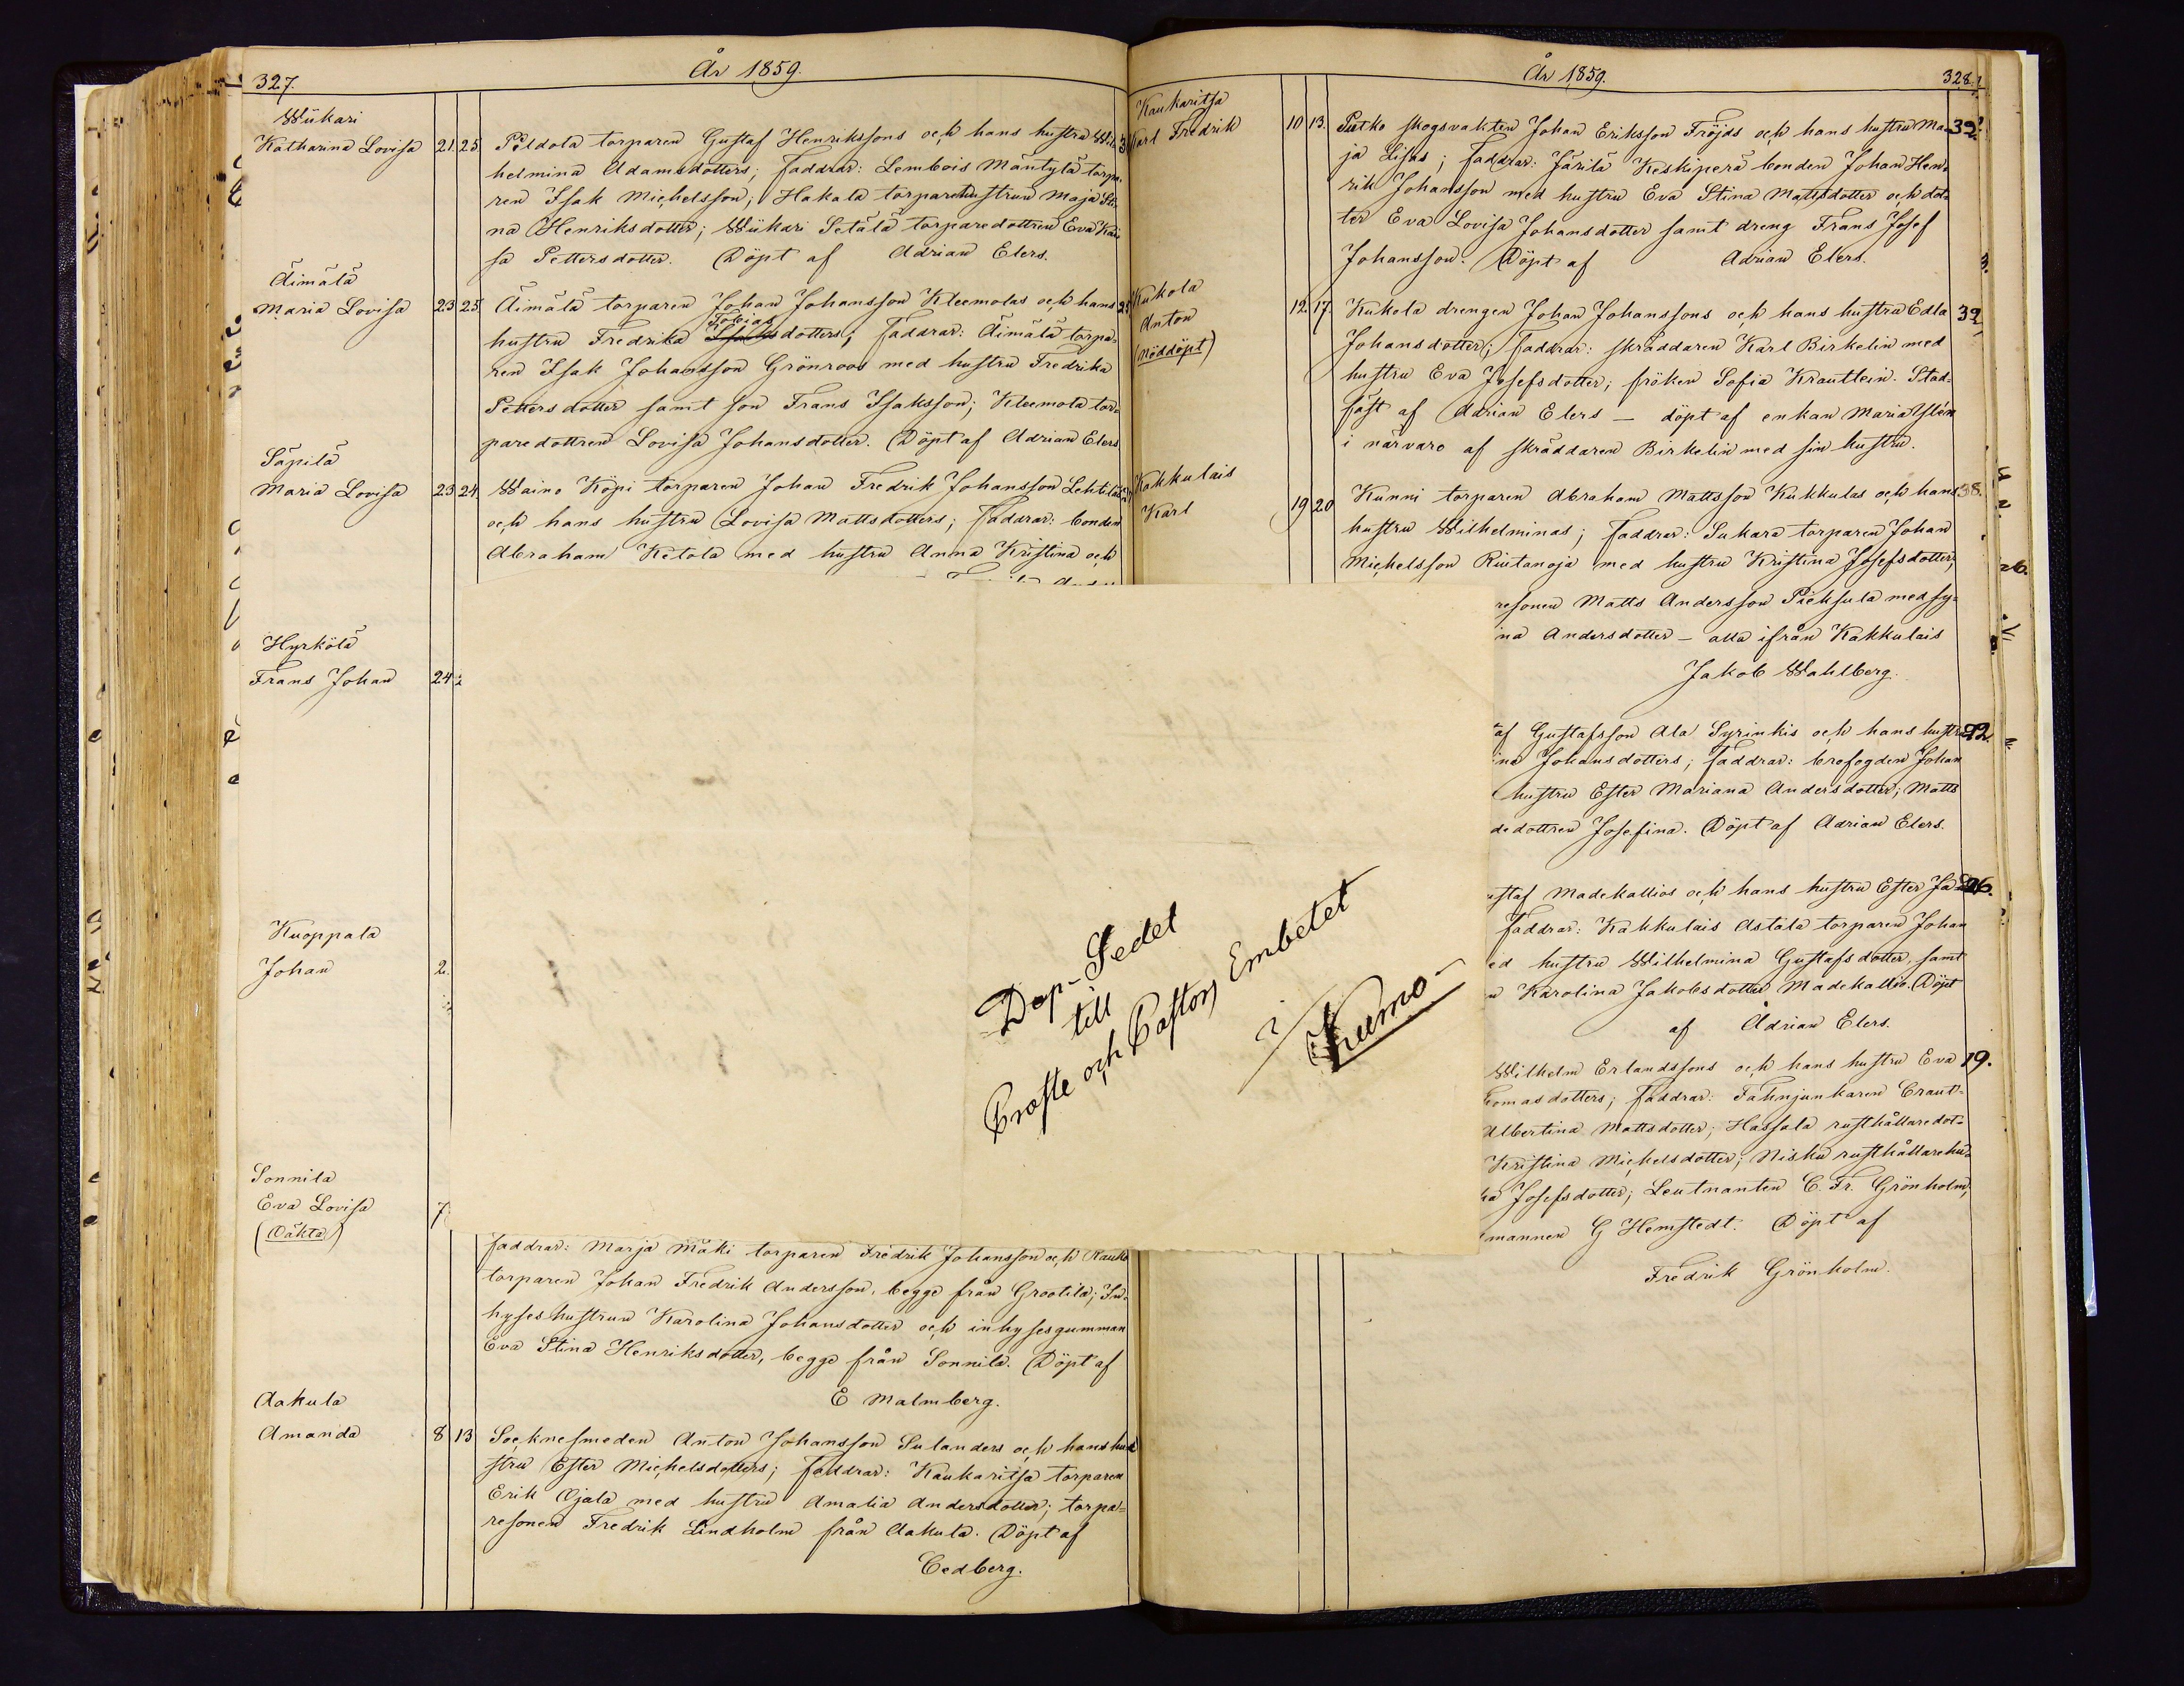 327.
År 1859.
Wükari
Katharina Lovisa 21. 25. Pildola torparen Gustaf Henrikssons och hans hustru Wil-
helmina Adamsdotters; faddrar: Lembois Mäntylä torpa-
ren Isak Michelsson; Hakala torparehustrun Maja Sti-
na Henriksdotter; Wükari Setälä torparedottren Eva Kai-
sa Pettersdotter. Döpt af Adrian Elers.
Äimälä
Maria Lovisa 23 25. Äimälä torparen Johan Johansson Kleemolas och hans
Tobias
hustru Fredrika dotters; faddrar: Äimälä torpa-
ren Isak Johansson Grönroos med hustru Fredrika
Pettersdotter samt son Frans Isaksson; Kleemola tor-
paredottren Lovisa Johansdotter. Döpt af Adrian Elers
Säpilä
Maria Lovisa 23 24 Waino Köpi torparen Johan Fredrik Johansson Lehtilas
och hans hustru Lovisa Mattsdotters; faddrar: bonden
Abraham Ketola med hustru Anna Kristina och
Hyrkölä
Frans Johan 24
Kuoppala
Johan 2
Sonnila
Eva Lovisa 7
(Oäkta)
faddrar: Marja Mäki torparen Fredrik Johansson och
torparen Johan Fredrik Andersson, begge från Grootila; In-
hyseshustrun Karolina Johansdotter och inhysesgumman
Eva Stina Henriksdotter, begge från Sonnila. Döpt af
E Malmberg.
Aakula
Amanda 8 13 Socknesmeden Anton Johansson Sulanders och hans hu-
stru Ester Michelsdotters; faddrar: Kaukaritsa torparen
Erik Ojala med hustru Amalia Andersdotter; torpa-
resonen Fredrik Lindholm från Aakula. Döpt af
Cedberg.
Dop-Sedel
till
Proste och Pastors Embetet
i
Kumo
År 1859.
328.
Kaukaritsa
Karl Fredrik 10 13. Putko skogsvakten Johan Eriksson Fröjds och hans hustru Ma- 32
ja Lisas; faddrar: Järilä Keskiperä bonden Johan Hen-
rik Johansson med hustru Eva Stina Mattsdotter och dot-
ter Eva Lovisa Johansdotter samt dreng Frans Josef
Johansson. Döpt af Adrian Elers.
Kukola
Anton 12. 17. Kukola drengen Johan Johanssons och hans hustru Edla 32
(nöddöpt) Johansdotter; faddrar: skräddaren Karl Birkelin med
hustru Eva Josefsdotter; fröken Sofia Krautlein. Stad-
fäst af Adrian Elers — döpt af enkan Maria Ylén
i närvaro af skräddaren Birkelin med sin hustru.
Kakkulais
Karl 19 20 Kunni torparen Abraham Mattsson Kukkulas och hans 38.
hustru Wilhelminas; faddrar: Sukara torparen Johan
Michelsson Riutanoja med hustru Kristina Josefsdotter;
resonen Matts Andersson Pieksula med sy-
na Andersdotter — alla ifrån Kakkulais
Jakob Wahlberg.
af Gustafsson Ala Syrinkis och hans hustru 22.
ina Johansdotters; faddrar: brofogden Johan
hustru Ester Mariana Andersdotter; Matts
dedottren Josefina. Döpt af Adrian Elers.
ustaf Madekallios och hans hustru Ester Ja 26.
faddrar: Kakkulais Astala torparen Johan
ed hustru Wilhelmina Gustafsdotter, samt
n Karolina Jakobsdotter Madekallio. Döpt
af Adrian Elers.
Wilhelm Erlandssons och hans hustru Eva 19.
homasdotters; faddrar: Fahnjunkaren Craut-
Albertina Mattsdotter; Hassala rusthållaredot-
Kristina Michelsdotter; Nisku rusthållarehu-
ka Josefsdotter; Leutnanten C. Fr. Grönholm;
mannen G Hemstedt. Döpt af
Fredrik Grönholm.